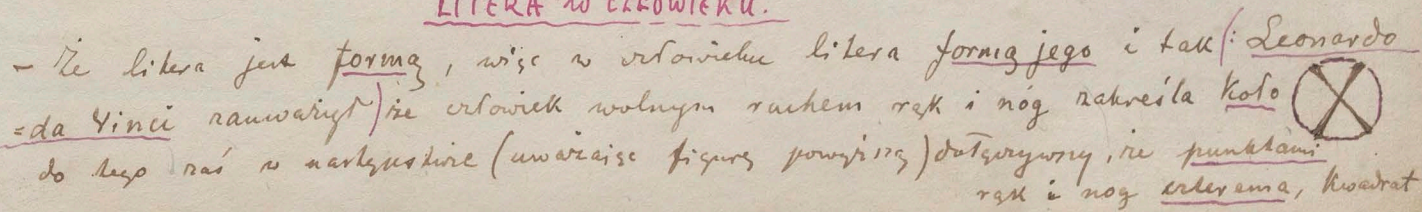 LITERA W CZŁOWIEKU.
– Że litera jest formą, więc w człowieku litera formą jego i tak (: Leonardo
=da Vinci zauważył) że człowiek wolnym ruchem rąk i nóg zakreśla Koło
do tego zaś w następstwie (uważając figurę powyższą) dołączywszy, że punktami
rąk i nog czterema, Kwadrat